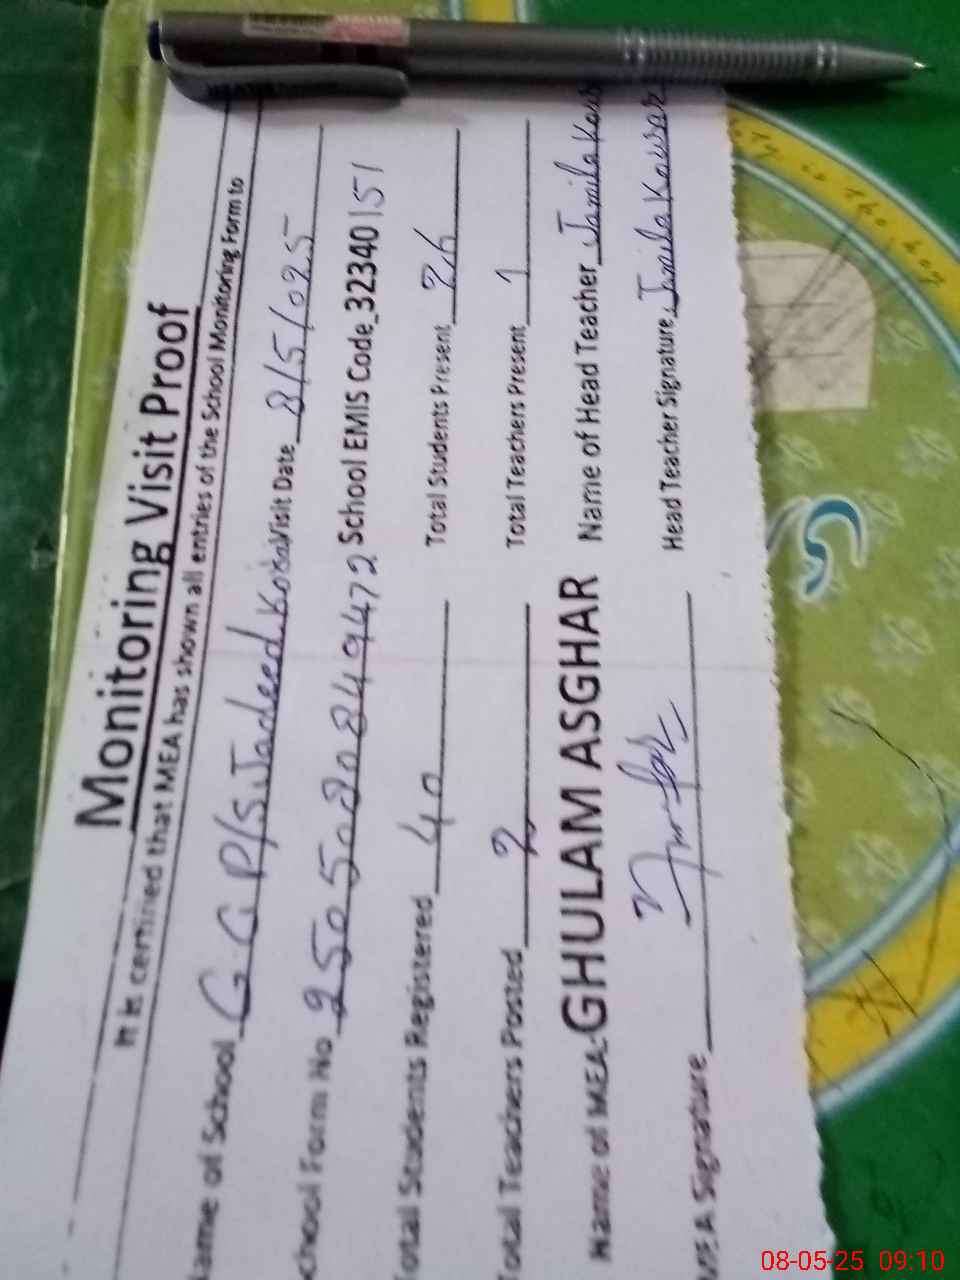 Monitoring Visit Proof
It is certified that MEA has shown all entries of the School Monitoring Form to
Name of School G.G.P/S Jadeed Visit Date 8/5/025
School Form No 2505020849472 School EMIS Code 32340151
Total Students Registered 40 Total Students Present 26
Total Teachers Posted 2 Total Teachers Present 1
Name of MEA: GHULAM ASGHAR Name of Head Teacher Jamila Kous
MEA Signature Head Teacher Signature Jamila Kousar
is the key
08-05-25 09:10